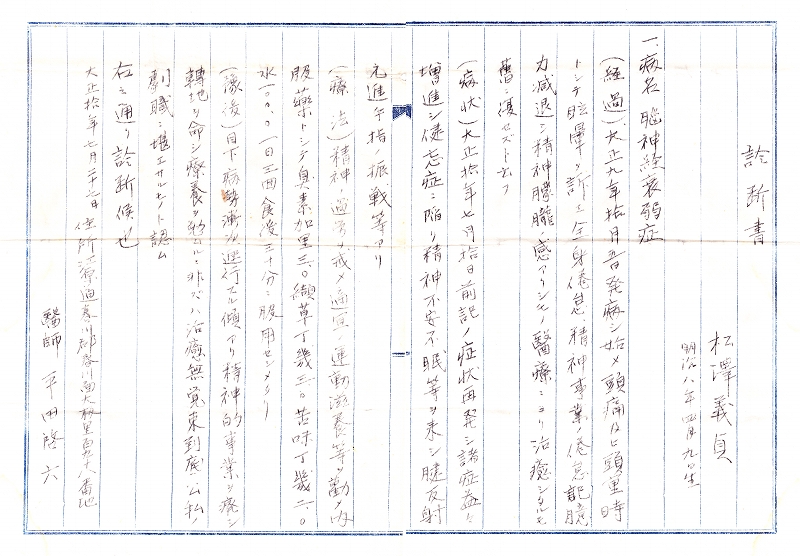 診断書
松澤義貞
明治八年四月九日生
一、病名 脳神経衰弱症
(経過)大正九年拾月 発病シ始メ頭痛及ヒ頭重時
トシテ眩暈ヲ訴エ全身倦怠、精神事業ノ倦怠記臆
力減退シ精神朦朧ノ感アリシモノ醫療ニヨリ治癒シタルモ
舊ニ復セズト云フ
(病状)大正拾年七月拾日前記ノ症状再発シ諸症益々
増進シ健忘症ニ陥リ精神不安不眠等ヲ来シ腱反射
亢進手指ノ振戦等アリ
(療法)精神ノ過労ヲ戒メ適宜ノ運動滋養等ヲ勧メ内
服薬トシテ臭素加里三.〇纈草丁幾三.〇苦味丁幾二.〇
水一〇〇.〇一日三回食後三十分ニ服用セシメタリ
(豫後)目下病勢漸次進行スル傾アリ精神的事業ヲ廃シ
轉地ヲ命シ療養ヲ勉ムルニ非ズバ治癒無覚束到底公私ノ
劇職ニ堪エサルモノト認ム
右之通リ診断候也
大正拾年七月二十 日
住所 江原道春川郡春川面大板里 八番地
醫師 平田啓六